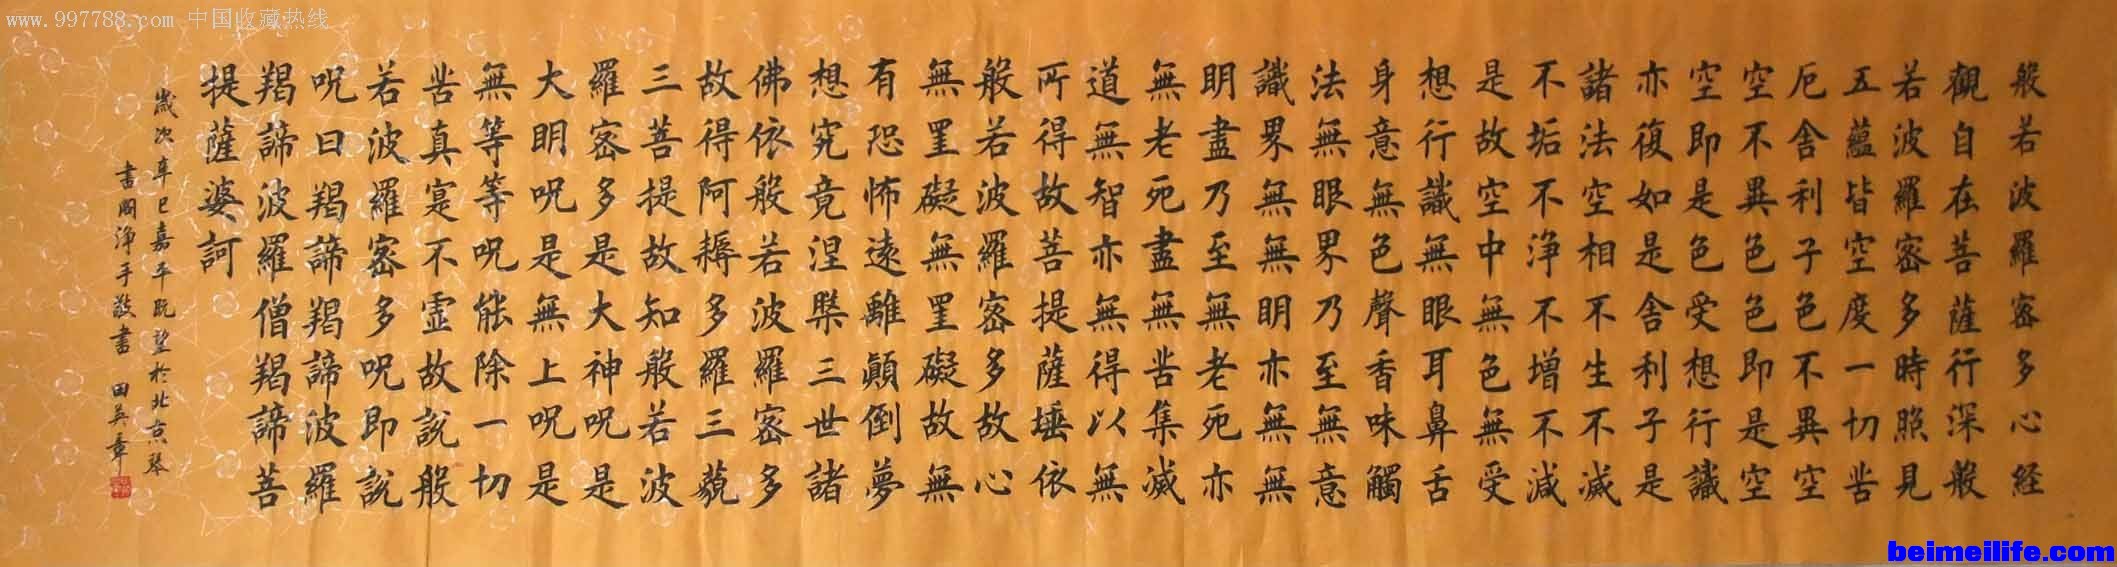 www.997788.com 中国收藏热线
般若波羅密多心経
觀自在菩薩行深般
若波羅密多時照見
五蘊皆空度一切苦
厄舍利子色不異空
空不異色色即是空
空即是色受想行識
亦復如是舍利子是
諸法空相不生不滅
不垢不浄不增不減
是故空中無色無受
想行識無眼耳鼻舌
身意無色聲香味觸
法無眼界乃至無意
識界無無明亦無無
明盡乃至無老死亦
無老死盡無苦集滅
道無智亦無得以無
所得故菩提薩埵依
般若波羅密多故心
無罣礙無罣礙故無
有恐怖遠離顛倒夢
想究竟涅槃三世諸
佛依般若波羅密多
故得阿耨多羅三藐
三菩提故知般若波
羅密多是大神呪是
大明呪是無上呪是
無等等呪能除一切
苦真寔不虛故說般
若波羅密多呪即說
呪曰羯諦羯諦波羅
羯諦波羅僧羯諦菩
提薩婆訶
歲次辛巳嘉平既望於北京琴
書閣浄手敬書 田英章
beimeilife.com